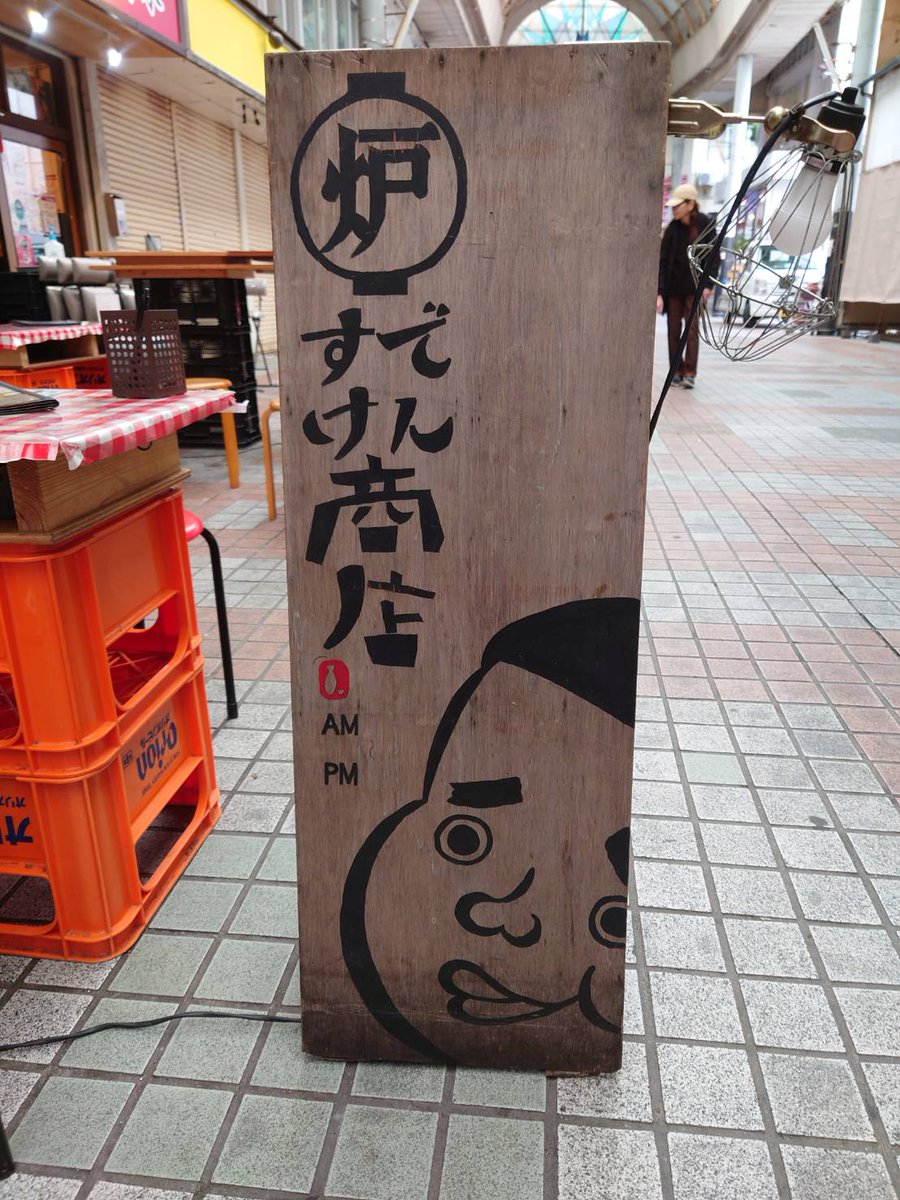 炉
すで
けん
商
店
AM
PM
orion
オリ